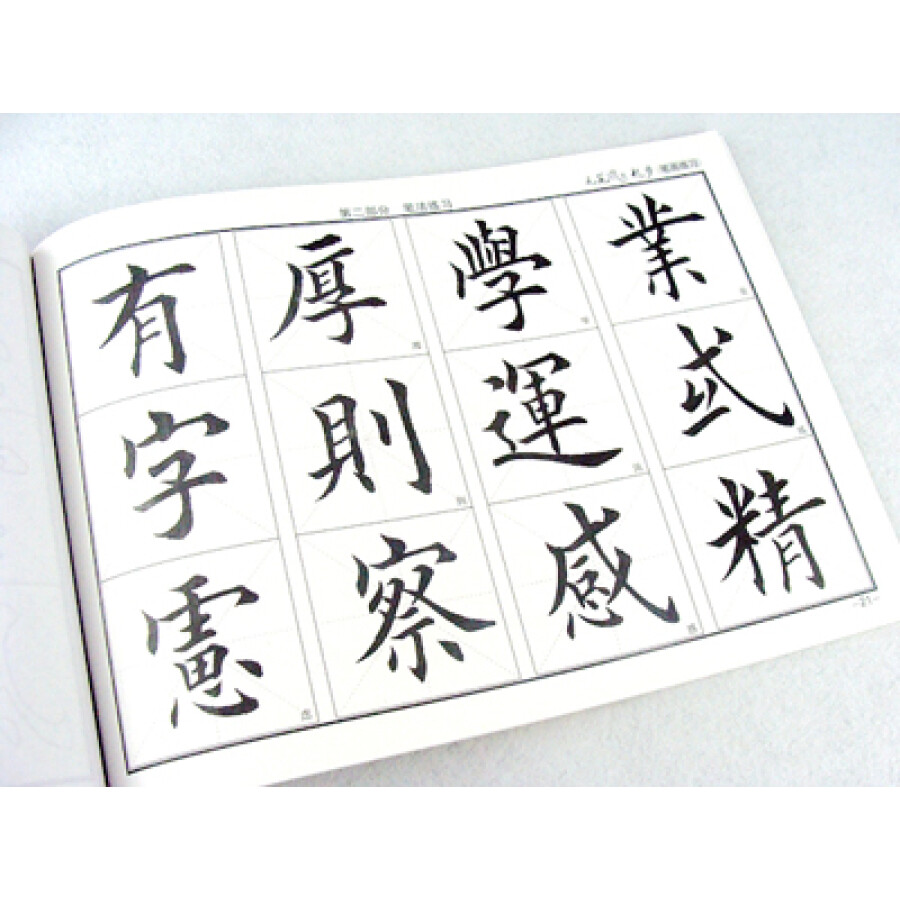 第二部分 笔法练习
有 厚 學 業
字 則 運
慮 察 感 精
-21-